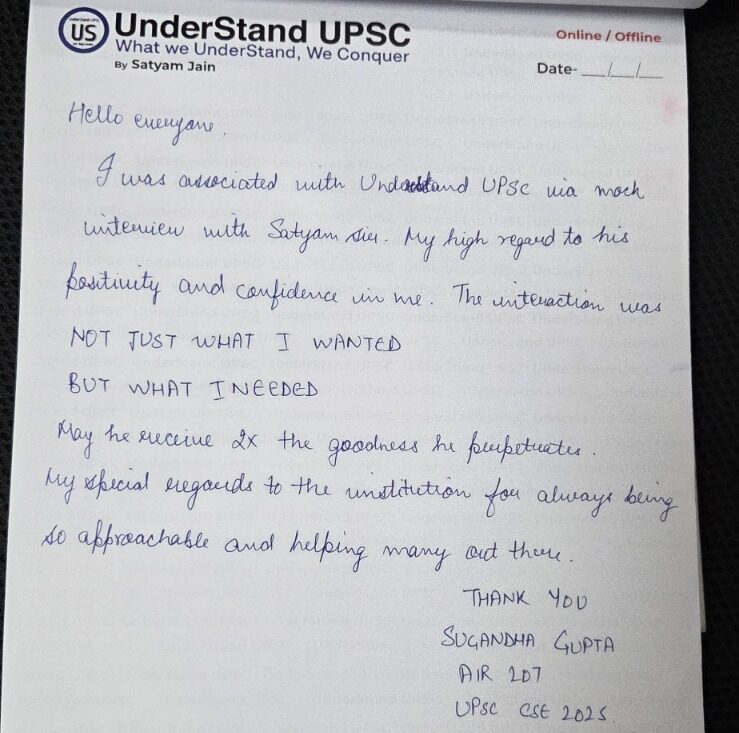 US UnderStand UPSC
What we UnderStand, We Conquer
By Satyam Jain
Online / Offline
Date- __/__/__
Hello everyone.
I was associated with Understand UPSC via mock
interview with Satyam sir. My high regard to his
positivity and confidence in me. The interaction was
NOT JUST WHAT I WANTED
BUT WHAT I NEEDED
May he receive 2x the goodness he perpetuates.
My special regards to the institution for always being
so approachable and helping many out there.
THANK YOU
SUGANDHA GUPTA
AIR 207
UPSC CSE 2025.